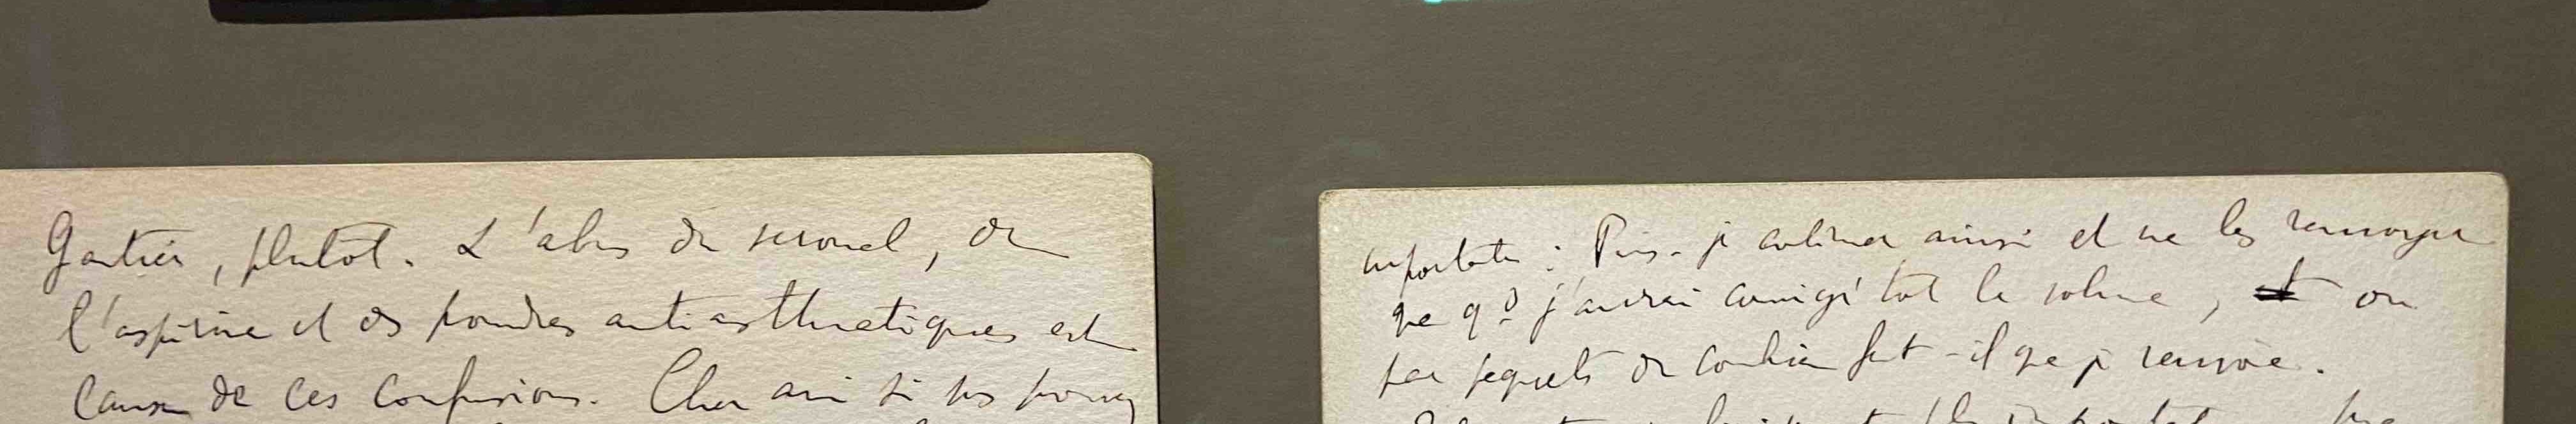 Gautier, plutôt. L'abus du véronal, de
l'aspirine et des poudres antiasthmatiques est
cause de ces confusions. Cher ami si vs pouvez
importante : Puis-je continuer ainsi et ne les renvoyer
que qd j'aurai corrigé tout le volume, ou
par paquets de combien faut-il que je renvoie.